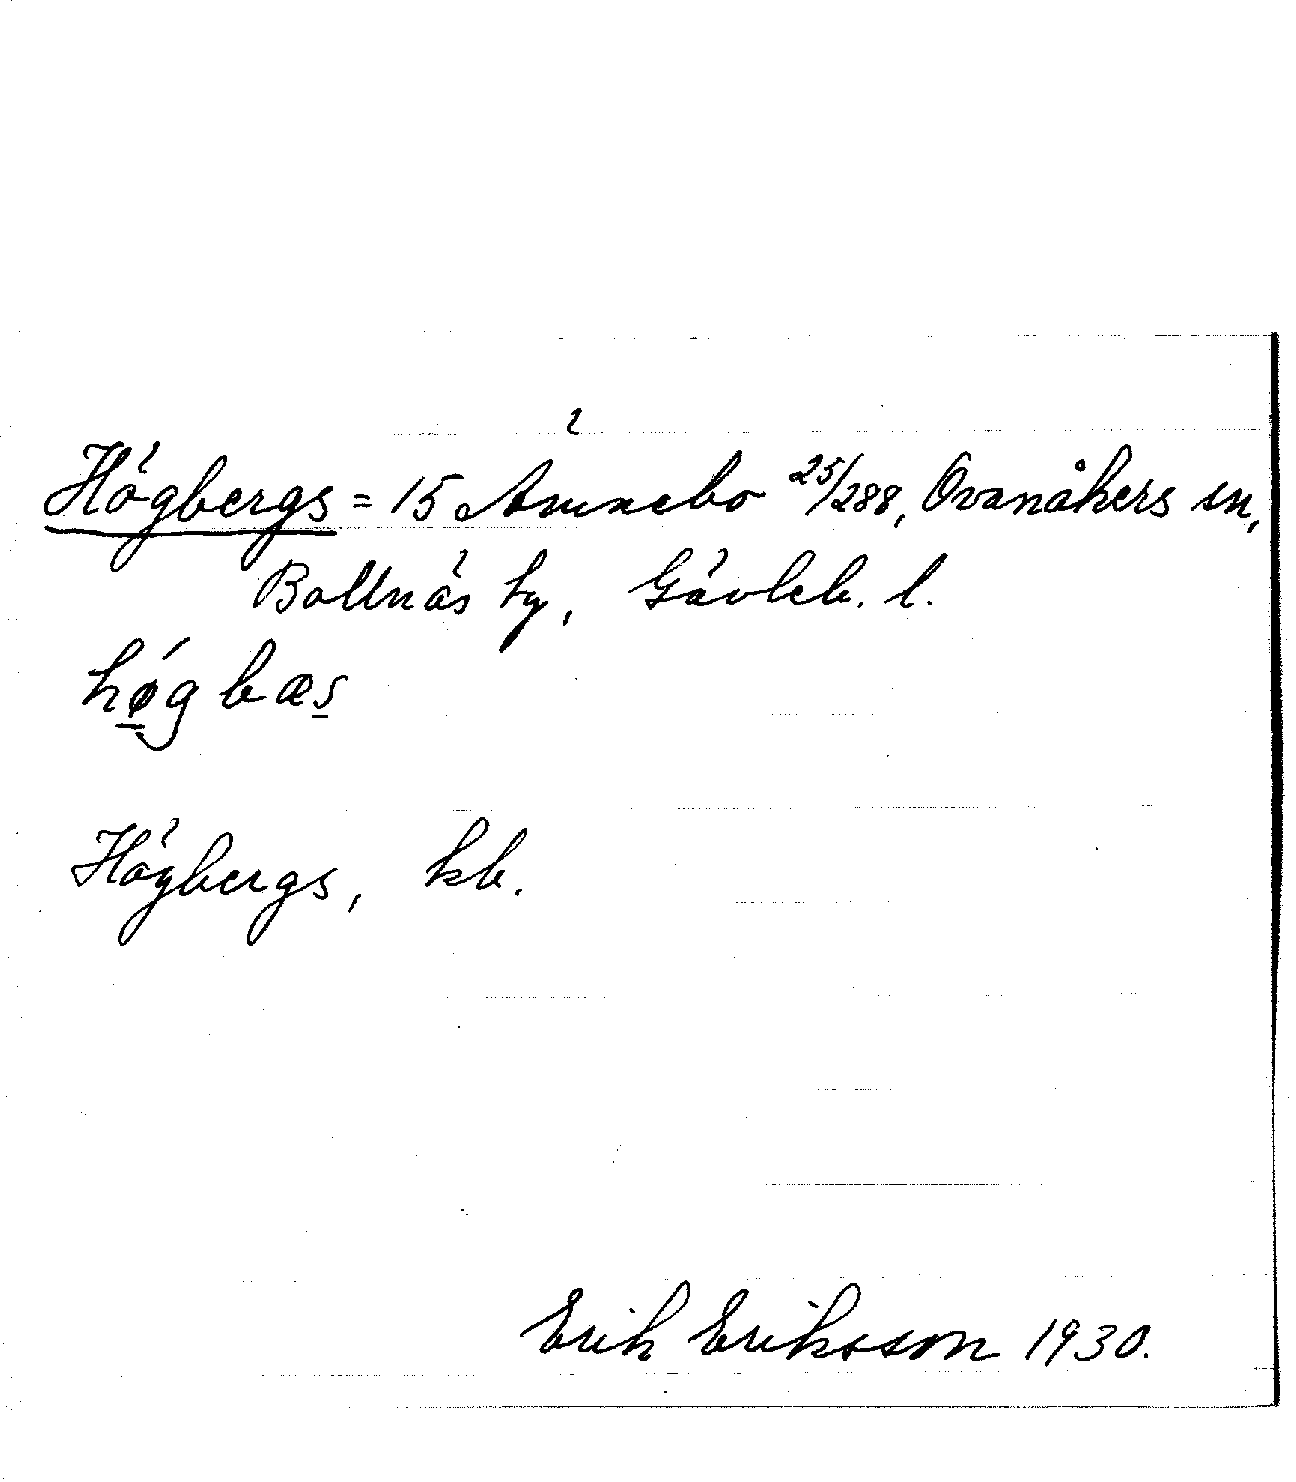 Högbergs = 15 Ämnebo 25/288, Ovanåkers sn,
Bollnäs tg, Gävleb. l.
hǿg bæs
Högbergs, kb.
Erik Eriksson 1930.